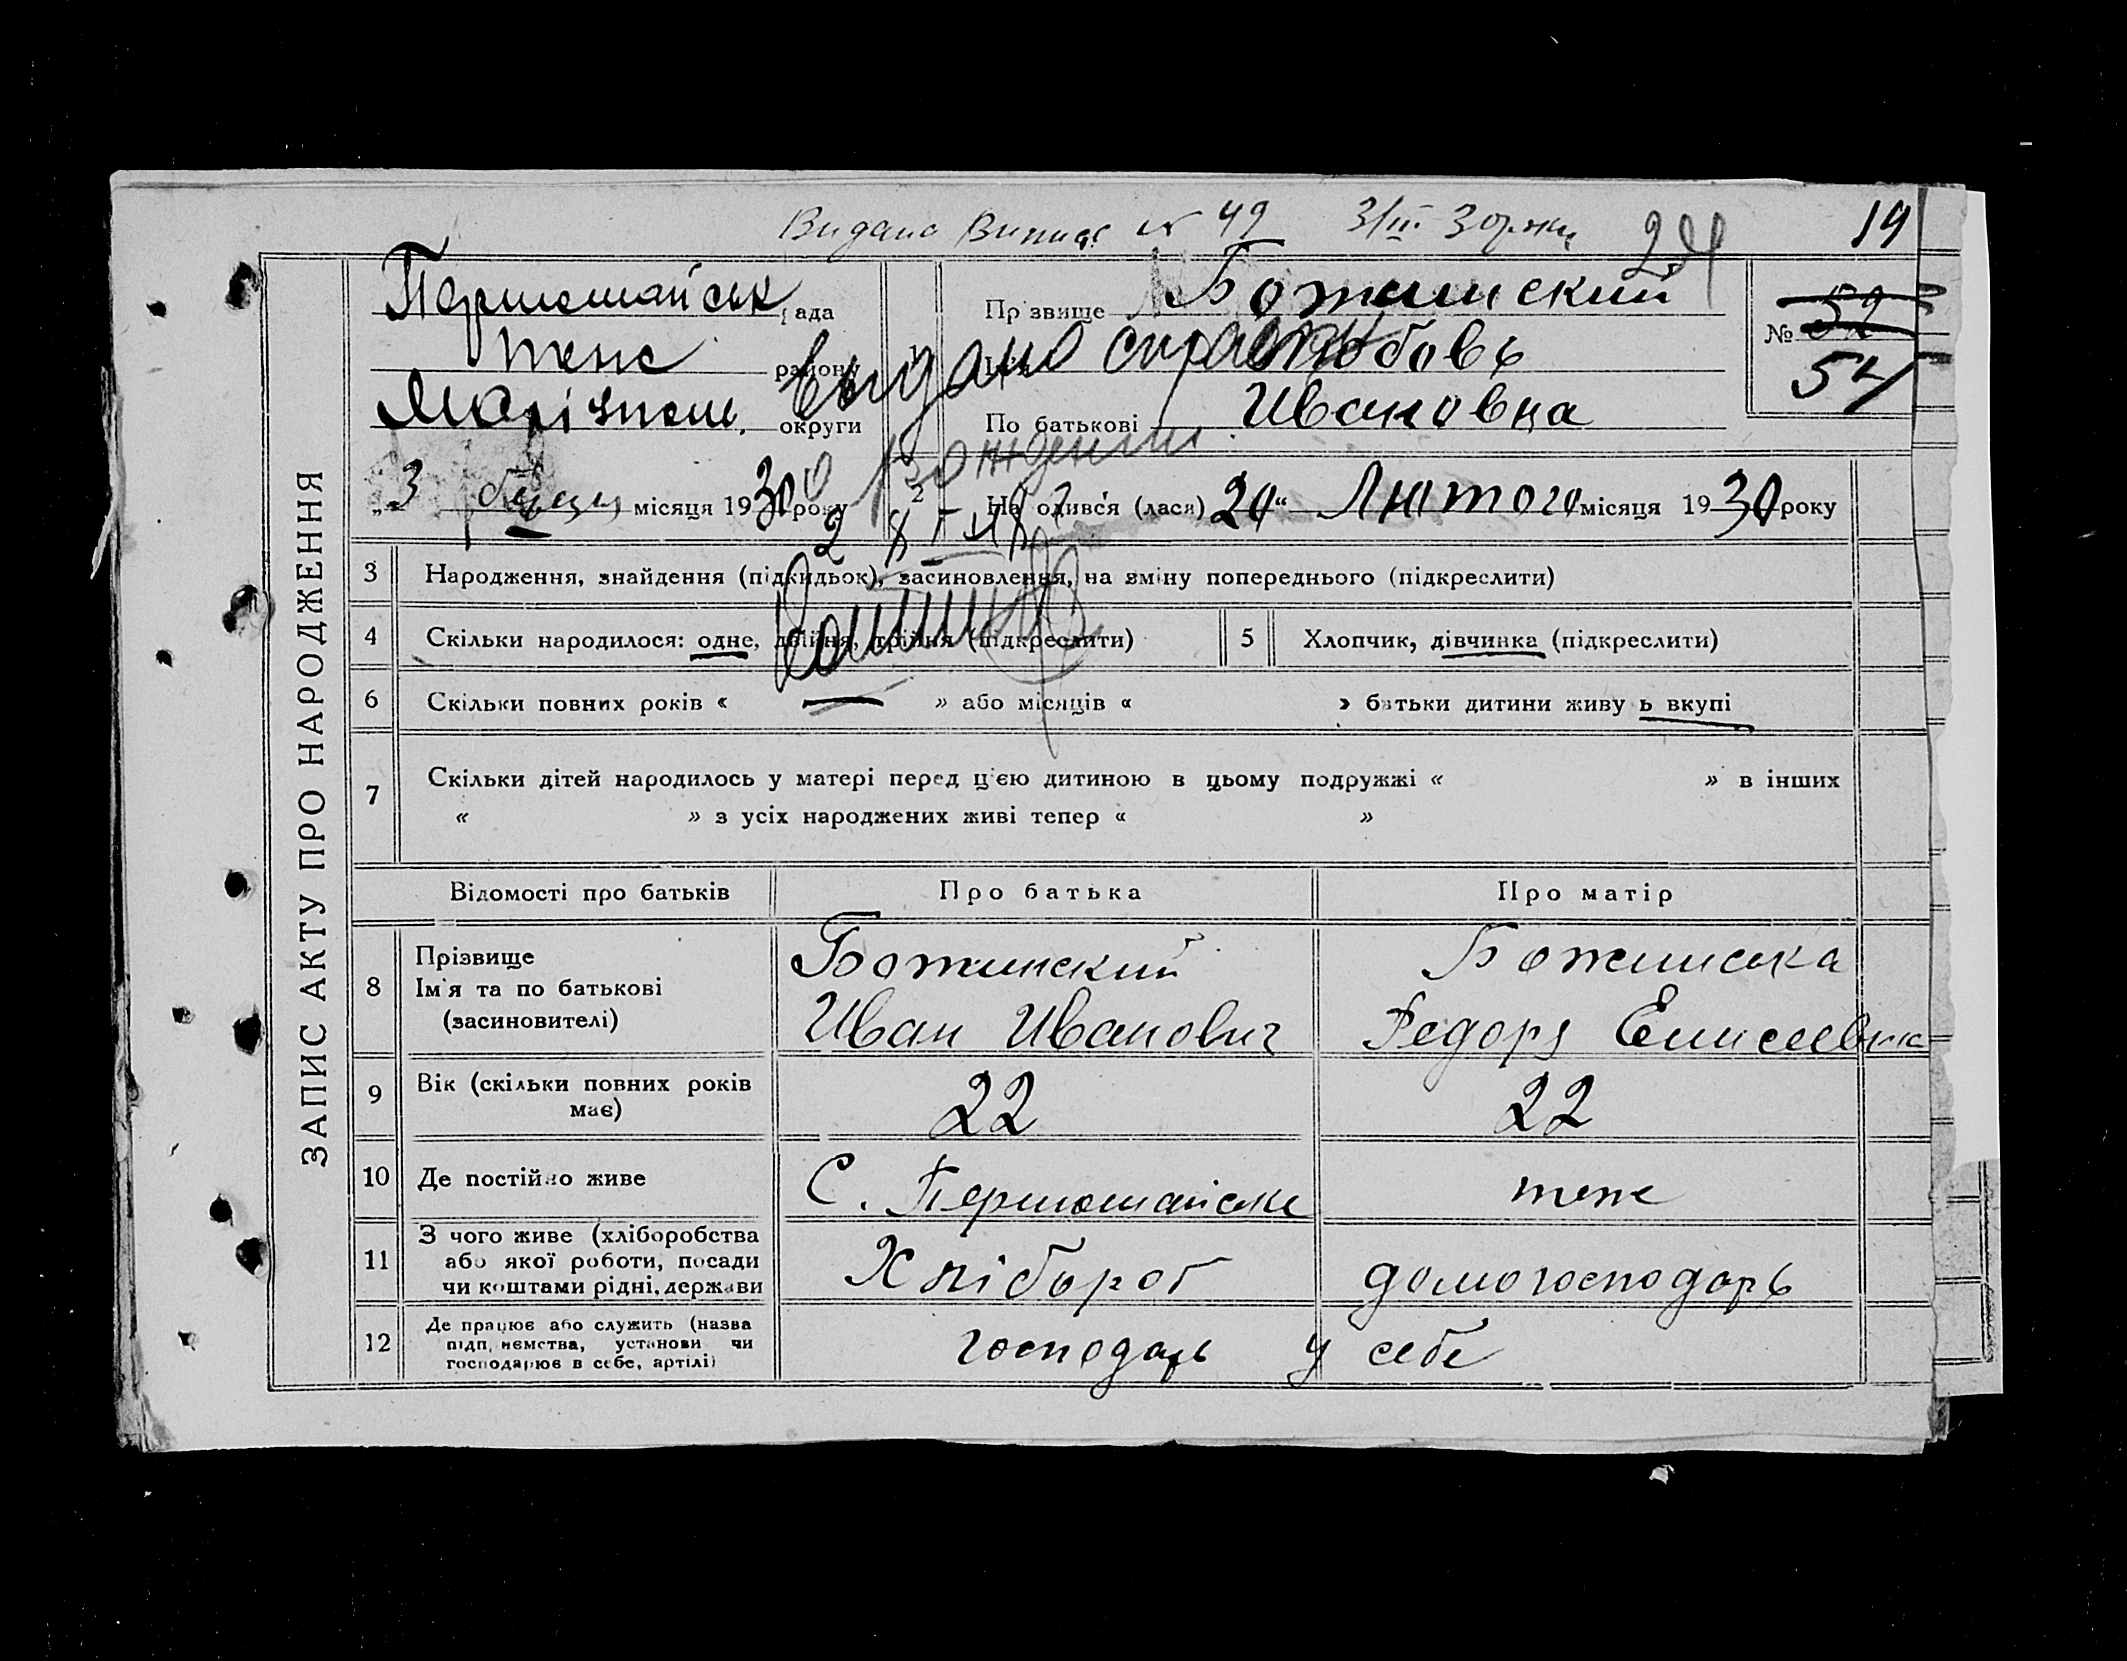 Видано Випис № 49 3/III 30 р. 24 19
ЗАПИС АКТУ ПРО НАРОДЖЕННЯ
Першомайськ рада
теж району
Маріуполь. округи
Прізвище Божинский
Любовь
По батькові Ивановна
№ 52
54
Выдано справку
о рождении
„3 місяця 1930 року
2 На одився (лася) 20“ Лютого місяця 1930 року
3 Народження, знайдення (підкидьок), засиновлення, на зміну попереднього (підкреслити)
4 Скільки народилося: одне, двійня, трійня (підкреслити) 5 Хлопчик, дівчинка (підкреслити)
6 Скільки повних років « — » або місяців « » батьки дитини живу ь вкупі
7 Скільки дітей народилось у матері перед ц'єю дитиною в цьому подружжі « » в інших
« » з усіх народжених живі тепер « »
Відомості про батьків Про батька Про матір
8 Прізвище
Ім'я та по батькові
(засиновителі)
Божинский
Иван Иванович
Божинська
Федора Елисеевна
9 Вік (скільки повних років
має)
22 22
10 Де постійно живе С. Першомайське теж
11 З чого живе (хліборобства
або якої роботи, посади
чи коштами рідні, держави
Хлібороб домогосподарь
12 Де працює або служить (назва
підп, иємства, установи чи
господарює в себе, артілі)
господарь у себе